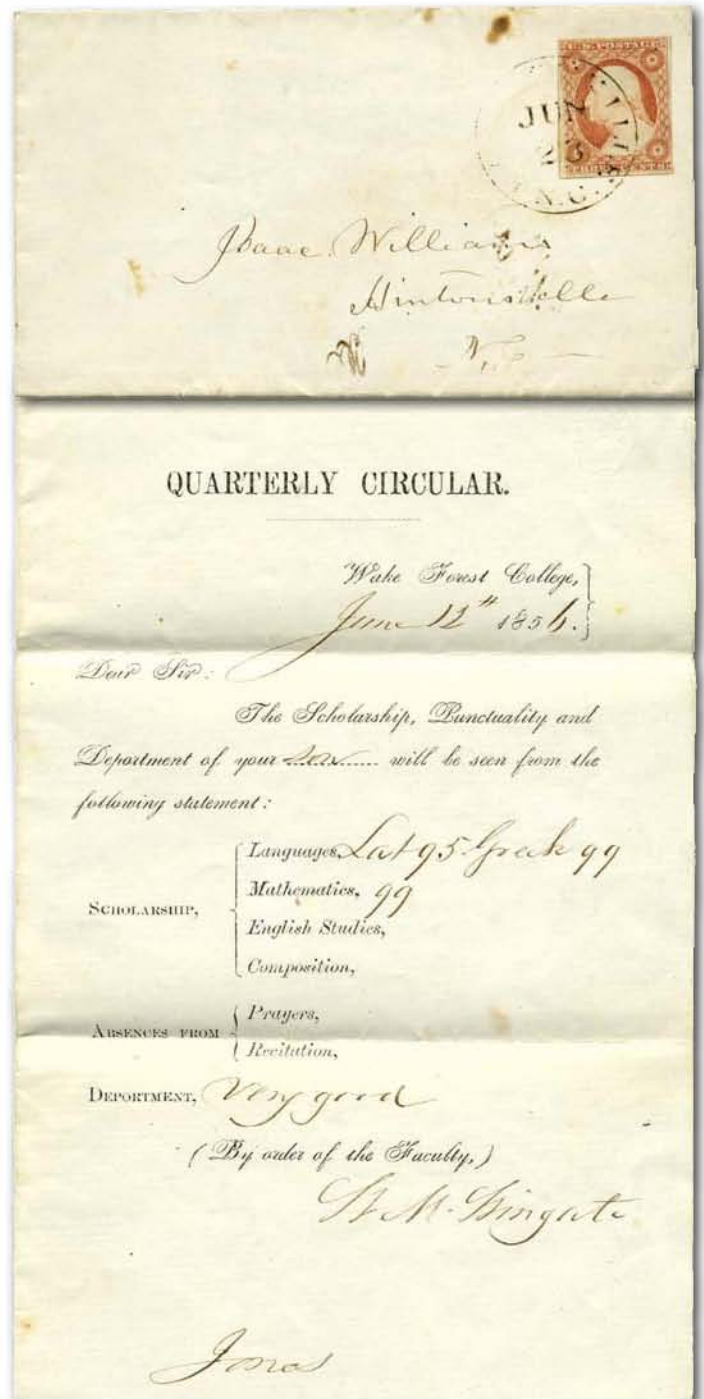 U.S. POSTAGE
JUN
23
N.C.
THREE CENTS
Isaac Williams
Hintonsville
N.C.
QUARTERLY CIRCULAR.
Wake Forest College,
June 12th 1856.
Dear Sir:
The Scholarship, Punctuality and
Deportment of your son will be seen from the
following statement:
Languages, Lat 95. Greek 99
Mathematics, 99
SCHOLARSHIP,
English Studies,
Composition,
Prayers,
ABSENCES FROM
Recitation,
DEPORTMENT, Very good
(By order of the Faculty,)
W. M. Wingate
Jonas